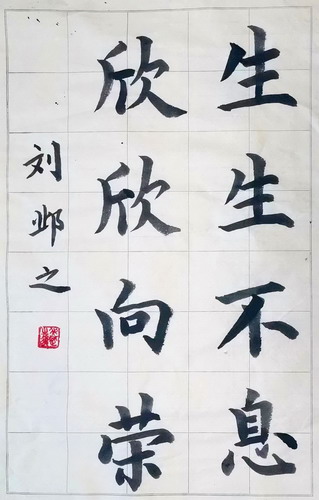 生生不息
欣欣向荣
刘邺之